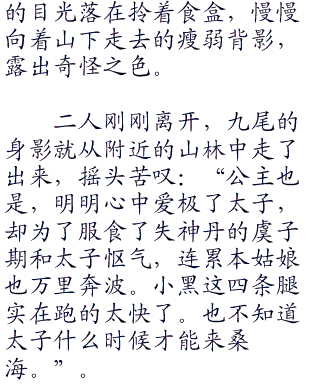 的目光落在拎着食盒，慢慢
向着山下走去的瘦弱背影，
露出奇怪之色。
二人刚刚离开，九尾的
身影就从附近的山林中走了
出来，摇头苦叹：“公主也
是，明明心中爱极了太子，
却为了服食了失神丹的虞子
期和太子怄气，连累本姑娘
也万里奔波。小黑这四条腿
实在跑的太快了。也不知道
太子什么时候才能来桑
海。”。